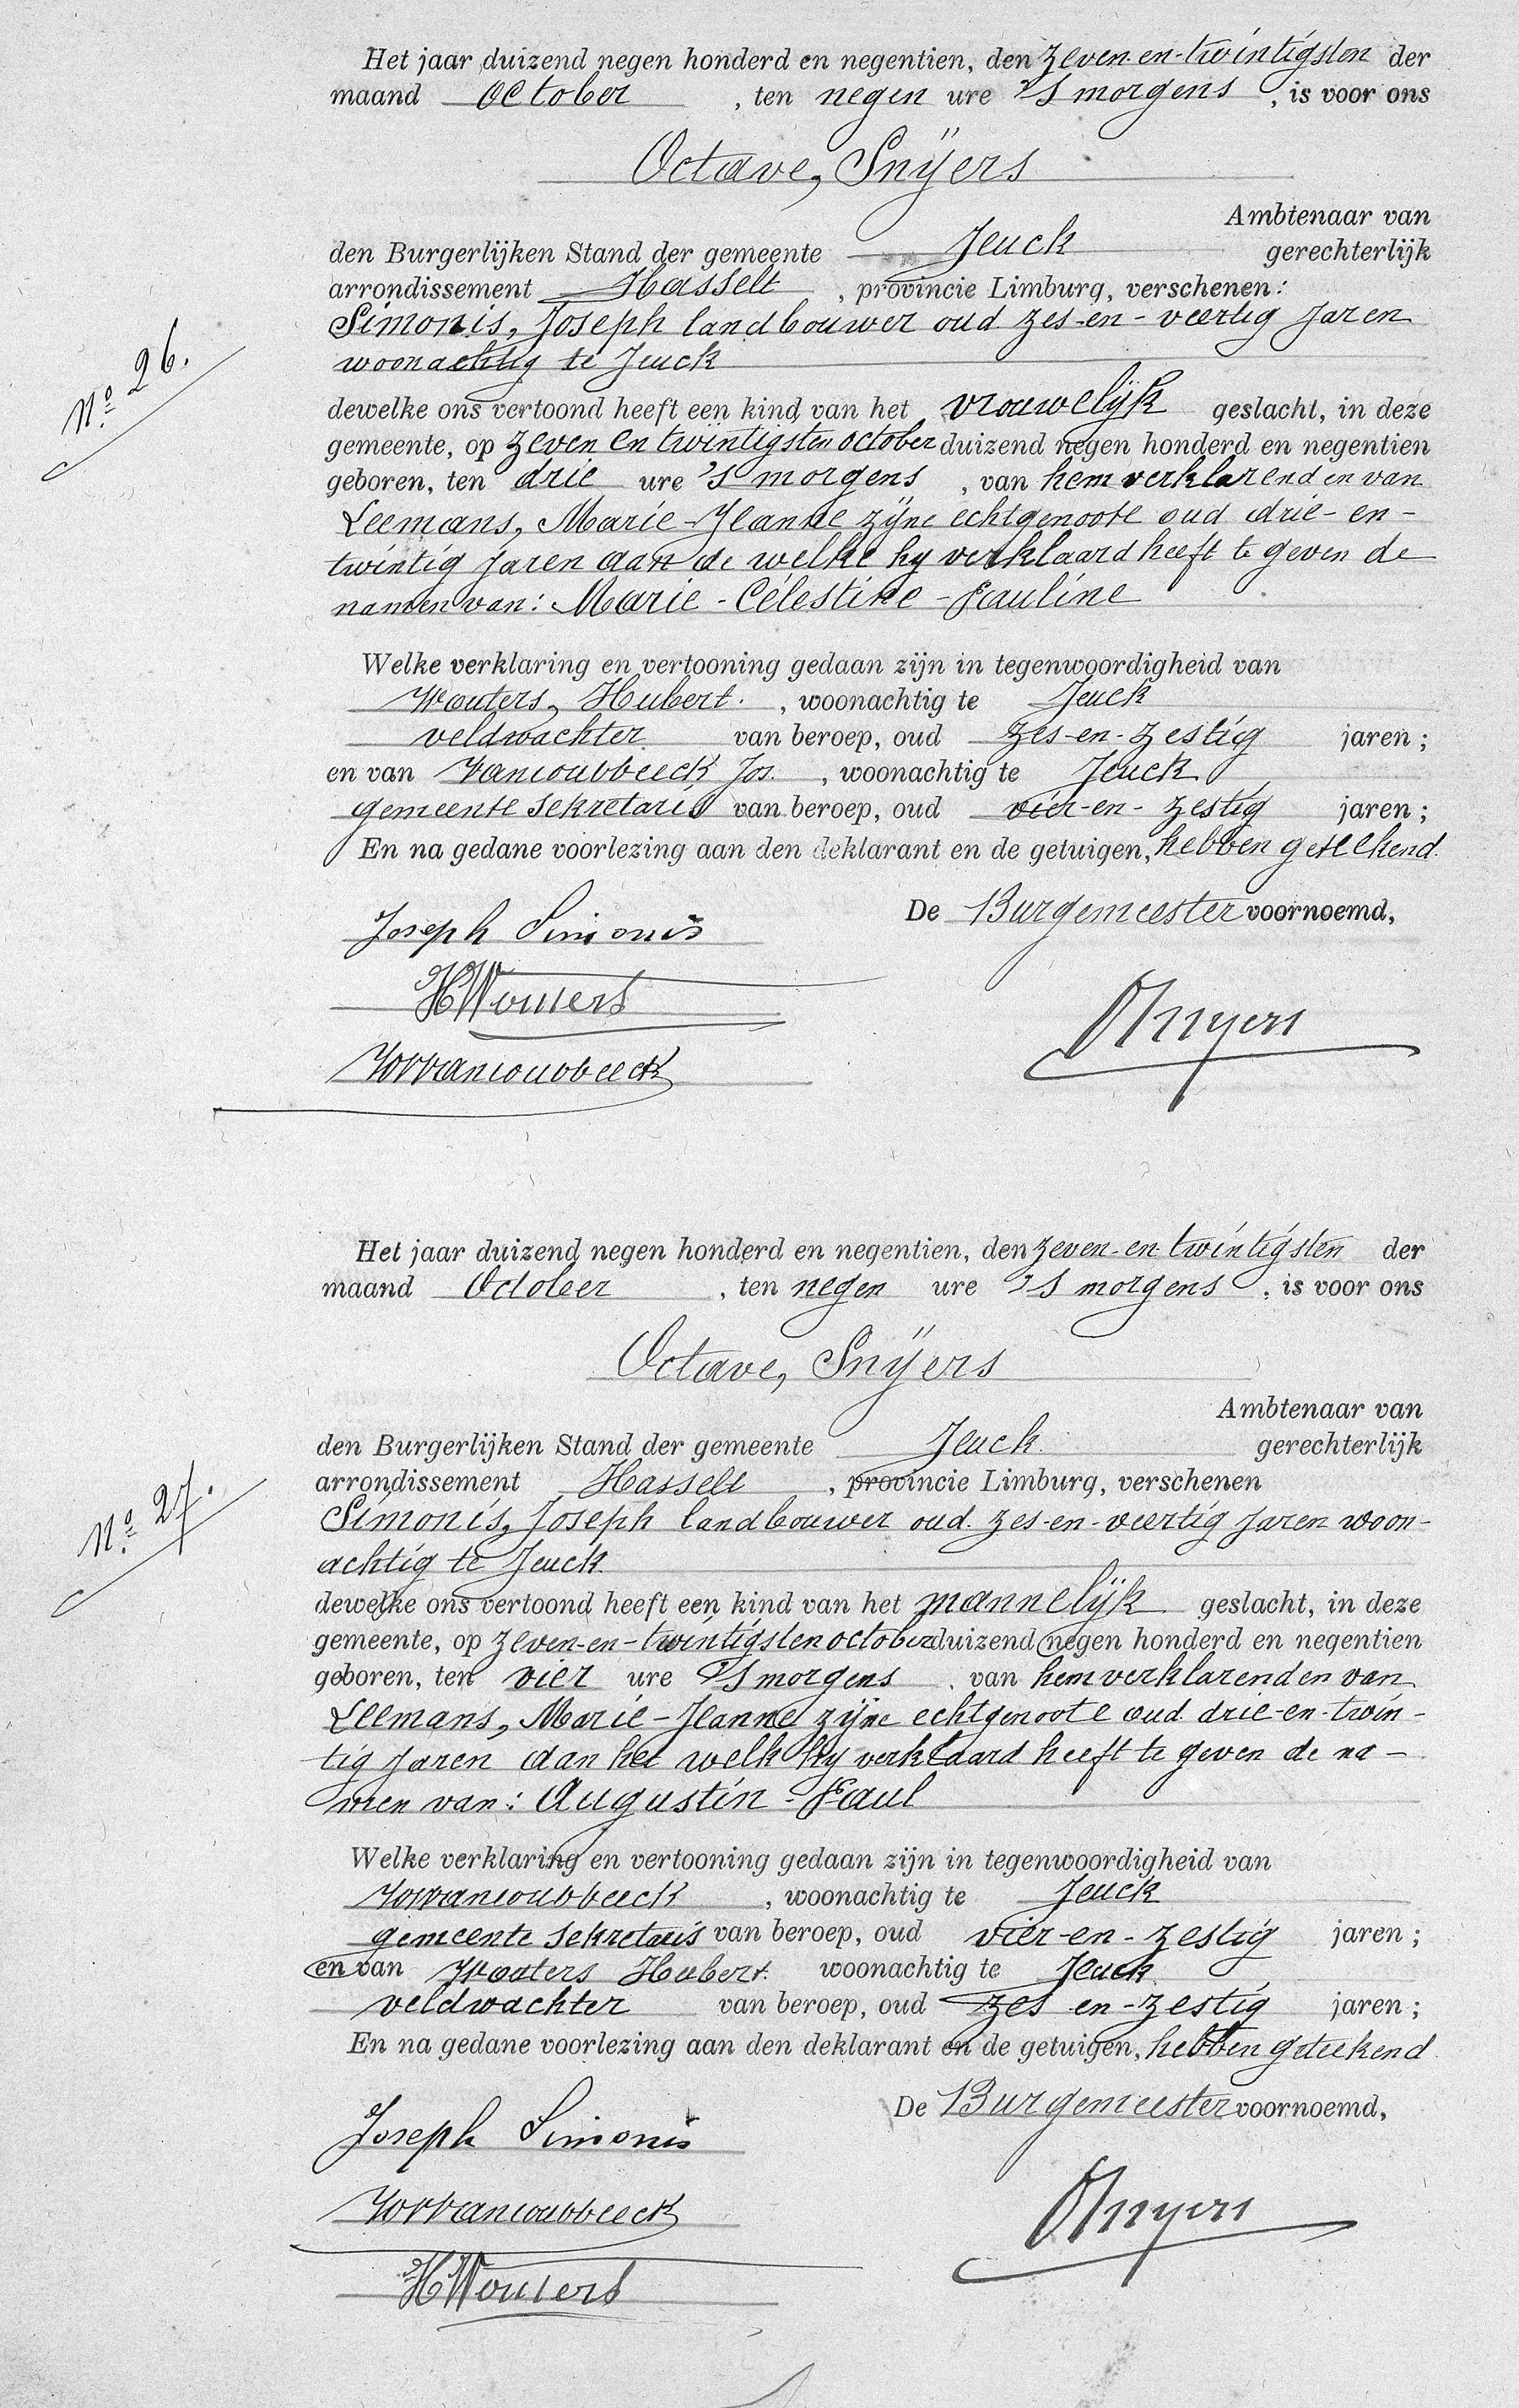 Het jaar duizend negen honderd en negentien, den zeven-en-twintigsten der
maand October , ten negen ure 's morgens , is voor ons
Octave, Snÿers
Ambtenaar van
den Burgerlijken Stand der gemeente Jeuck gerechterlijk
arrondissement Hasselt , provincie Limburg, verschenen:
Simonis, Joseph landbouwer oud zes-en-veertig jaren
woonachtig te Jeuck
Nº 26.
dewelke ons vertoond heeft een kind van het vrouwelÿk geslacht, in deze
gemeente, op zeven en twintigsten october duizend negen honderd en negentien
geboren, ten drie ure 's morgens , van hem verklarend en van
Leemans, Marie-Jeanne zÿne echtgenoote oud drie-en-
twintig jaren aan de welke hy verklaard heeft te geven de
namen van: Marie-Célestine-Pauline
Welke verklaring en vertooning gedaan zijn in tegenwoordigheid van
Wouters, Hubert. , woonachtig te Jeuck
veldwachter van beroep, oud zes-en-zestig jaren;
en van Vancoubbeeck Jos. , woonachtig te Jeuck
gemeente sekretaris van beroep, oud vier-en-zestig jaren;
En na gedane voorlezing aan den deklarant en de getuigen, hebben geteekend.
De Burgemeester voornoemd,
Joseph Simonis
HWouters
JosVancoubbeeck
OSnyers
Het jaar duizend negen honderd en negentien, den zeven-en-twintigsten der
maand October , ten negen ure 's morgens , is voor ons
Octave, Snÿers
Ambtenaar van
den Burgerlijken Stand der gemeente Jeuck gerechterlijk
arrondissement Hasselt , provincie Limburg, verschenen
Simonis, Joseph landbouwer oud zes-en-veertig jaren woon-
achtig te Jeuck.
Nº 27.
dewelke ons vertoond heeft een kind van het mannelÿk geslacht, in deze
gemeente, op zeven-en-twintigsten october duizend negen honderd en negentien
geboren, ten vier ure 's morgens , van hem verklarend en van
Leemans, Marie-Jeanne zÿne echtgenoote oud drie-en-twin-
tig jaren aan het welk hy verklaard heeft te geven de na-
men van: Augustin-Paul
Welke verklaring en vertooning gedaan zijn in tegenwoordigheid van
JosVancoubbeeck , woonachtig te Jeuck
gemeente sekretaris van beroep, oud vier-en-zestig jaren;
en van Wouters Hubert. woonachtig te Jeuck.
veldwachter van beroep, oud zes en-zestig jaren;
En na gedane voorlezing aan den deklarant en de getuigen, hebben geteekend
De Burgemeester voornoemd,
Joseph Simonis
JosVancoubbeeck
OSnyers
HWouters